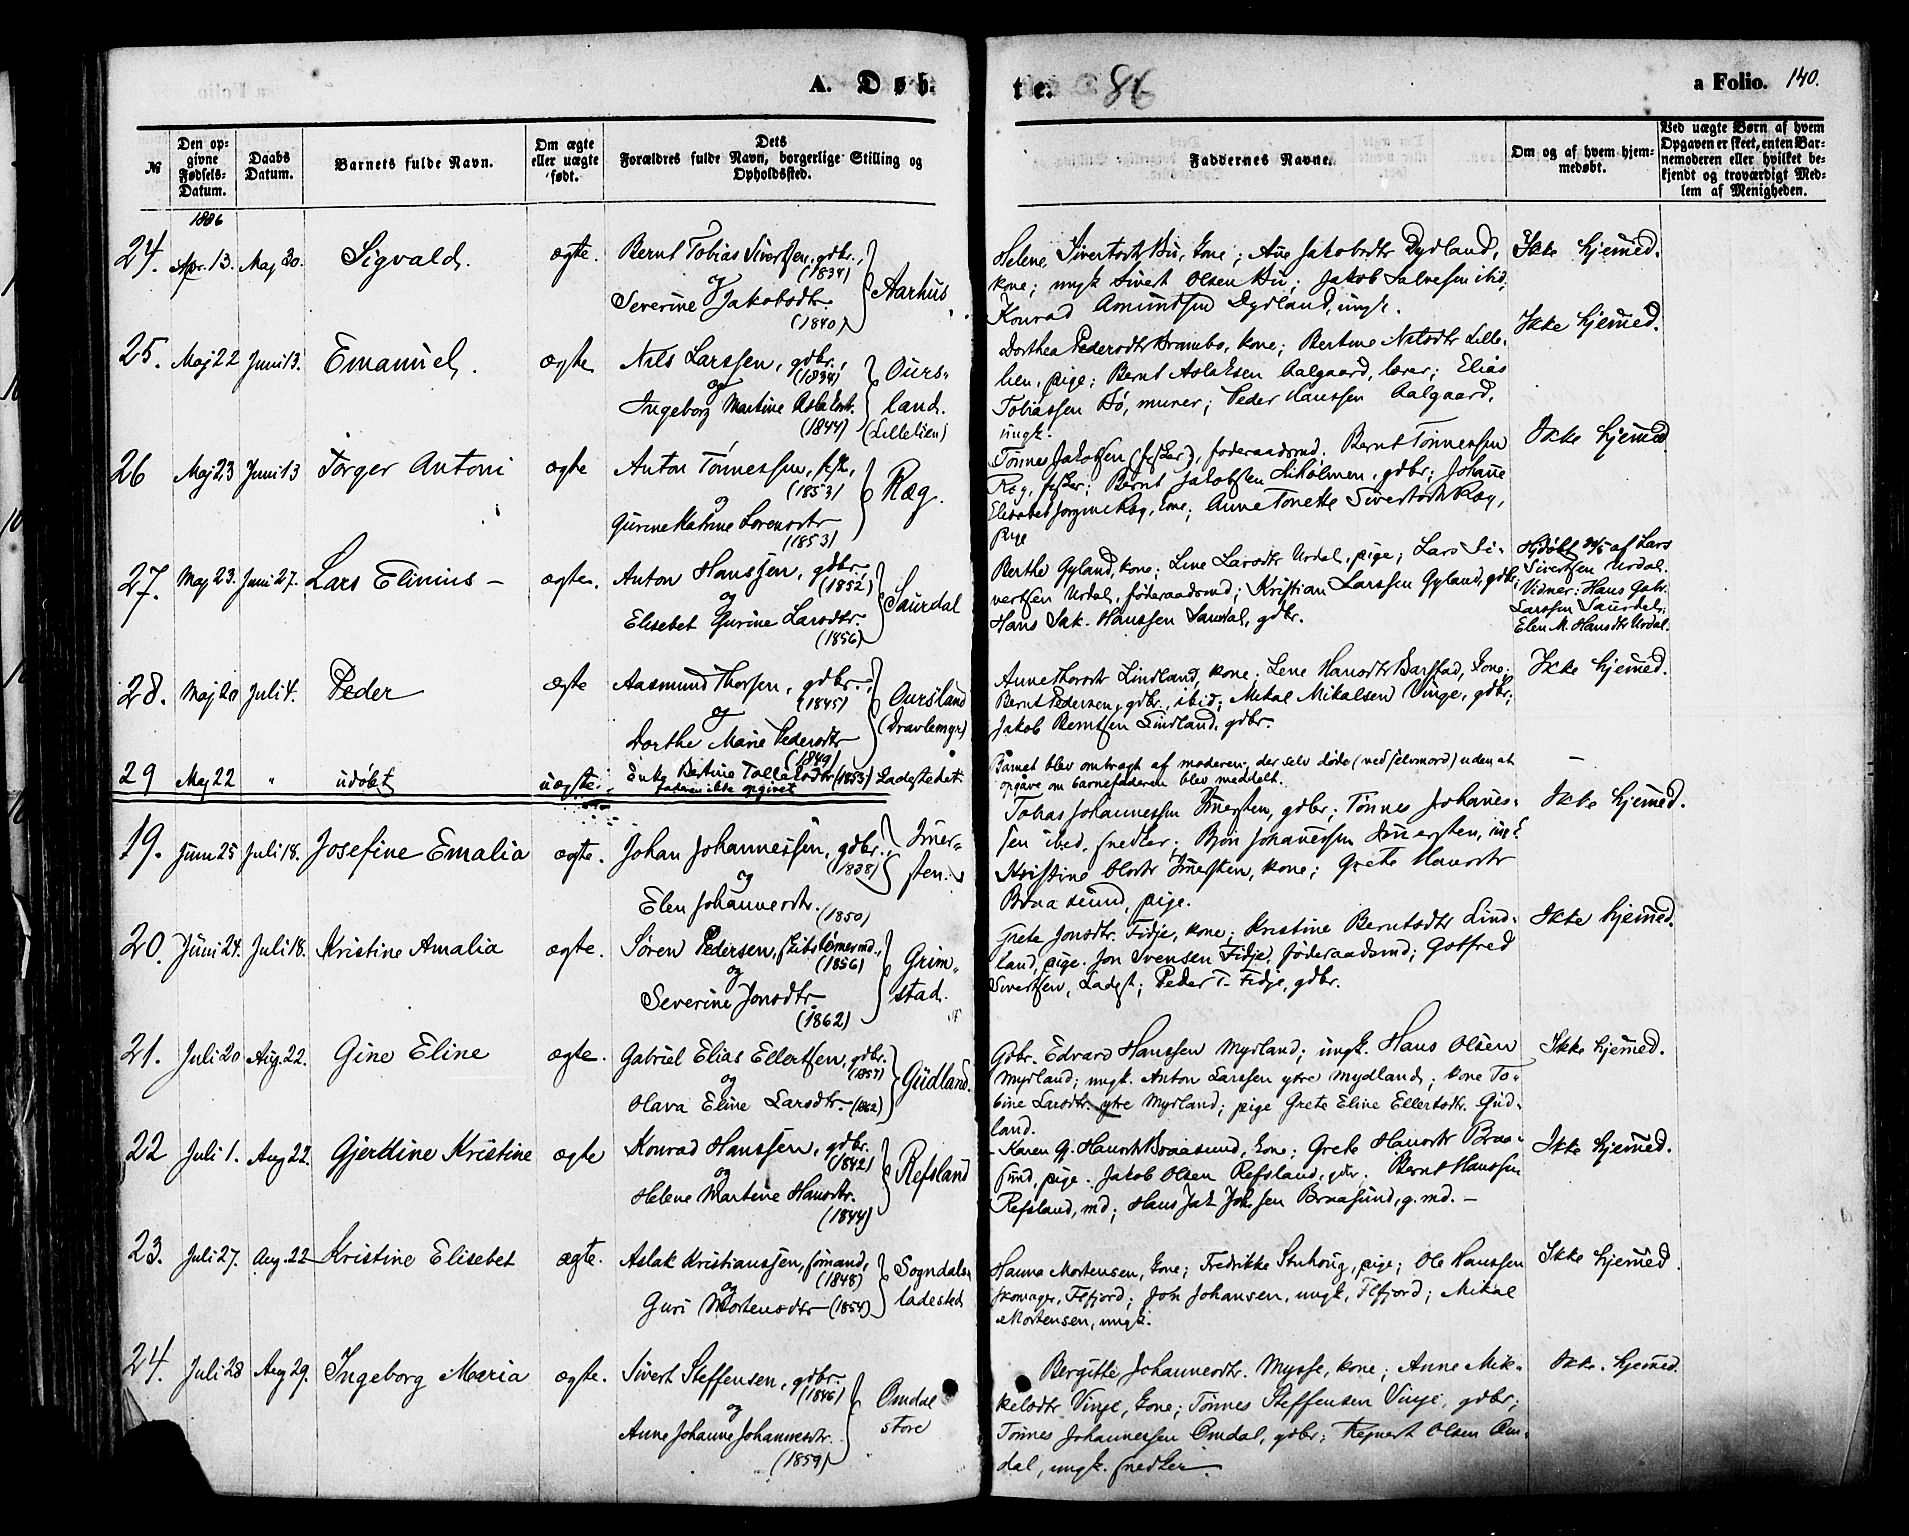 A. Døb-
te.
86
a Folio. 140.
№
Den op-
givne
Fødsels-
Datum.
Daabs
Datum.
Barnets fulde Navn.
Om ægte
eller uægte
født.
Dets
Forældres fulde Navn, borgerlige Stilling og
Opholdssted.
Faddernes Navne.
Om og af hvem hjem-
medøbt.
Ved uægte Børn af hvem
Opgaven er skeet, enten Bar-
nemoderen eller hvilket be-
kjendt og troværdigt Med-
lem af Menigheden.
1886
24. Apr. 13. Maj 30. Sigvald. ægte. Bernt Tobias Sivertsen, gdbr.,
(1834)
og
Severine Jakobsdtr.
(1840)
Aarhus
Helene Sivertsdtr Bu, kone; Ane Jakobsdtr Dydland,
kone; ungk Sivert Olsen Bu; Jakob Salvesen ibid,
Konrad Amundsen Dydland, ungk.
Ikke hjemmed.
25. Maj 22 Juni 13. Emanuel. ægte Nils Larssen, gdbr.,
(1834)
og
Ingeborg Martine Aslaksdt.
(1844)
Ours-
land.
(Lillelien)
Dorthea Pedersdtr Brambo, kone; Bertine Nilsdtr Lille-
lien, pige; Bernt Aslaksen Aalgaard, lærer; Elias
Tobiassen Bø, murer; Peder Hanssen Aalgaard,
ungk.
Ikke hjemmed.
26 Maj 23 Juni 13 Torger Antoni ægte Anton Tønnessen, fisk.,
(1853)
og
Gurine Katrine Lorensdtr
(1853)
Ræg.
Tønnes Jakobsen (fisker), foderaadsmd. Bernt Tønnessen
Ræg, fisker; Bernt Jakobsen Stiholmen, gdbr; Johanne
Elisabet Jorgine Ræg, kone; Anne Tonette Sivertsdtr Ræg,
pige
Ikke hjemmed
27. Maj 23. Juni 27. Lars Elinius – ægte. Anton Hanssen, gdbr.
(1852)
og
Elisebet Gurine Larsdtr.
(1856)
Saurdal
Berthe Gyland, kone; Line Larsdtr Urdal, pige; Lars Si-
vertsen Urdal, føderaadsmd; Kristian Larssen Gyland, gdbr;
Hans Jak. Hanssen Saurdal, gdbr.
Hjdøbt af Lars
Sivertsen Urdal.
Vidner: Hans Gabr.
Larssen Saurdal;
Elen M. Hansdtr Urdal.
28. Maj 20 Juli 4. Peder ægte Aasmund Thorsen, gdbr.,
(1845)
og
Dorthe Marie Pedersdtr
(1849)
Oursland
(Dravlemyr)
Anne Thorsdtr Lindland, kone; Lene Hansdtr Barstad, kone;
Bernt Pedersen, gdbr, ibid; Mikal Mikalsen Vinge, gdbr;
Jakob Berntsen Lindland, gdbr.
Ikke hjemmed.
29 Maj 22 " udøbt uægte. Enke Bertine Tollaksdtr (1853) Ladestedet.
faderen ikke opgivet
Barnet blev ombragt af moderen, der selv døde (ved selvmord) uden at
opgave om barnefaderen blev meddelt.
–
19. Juni 25 Juli 18. Josefine Emalia ægte. Johan Johannessen, gdbr.,
(1838)
og
Elen Johannesdtr.
(1850)
Imer-
sten.
Tobias Johannessen Imersten, gdbr; Tønnes Johannes-
sen ibid, snedker; Bjøn Johannessen Imersten, ungk
Kristine Olsdtr Imersten, kone; Grete Hansdtr
Braasund, pige.
Ikke hjemmed.
20. Juni 24. Juli 18. Kristine Amalia ægte. Søren Pedersen, skibstømermd.,
(1856)
og
Severine Jonsdtr.
(1862)
Grim-
stad.
Grete Jonsdtr. Fidje, kone; Kristine Berntsdtr Lind-
land, pige. Jon Svensen Fidje, føderaadsmd; Gotfred
Sivertsen, Ladest; Peder T. Fidje, gdbr.
Ikke hjemmed.
21. Juli 20 Aug. 22. Gine Eline ægte. Gabriel Elias Ellertsen, gdbr.
(1857)
og
Olava Eline Larsdtr. (1862)
Gudland.
Gdbr. Edvard Hanssen Mydland; ungk. Hans Olsen
Mydland; ungk. Anton Larssen ytre Mydland; kone To-
bine Larsdtr. ytre Mydland; pige Grete Eline Ellertsdtr. Gud-
land.
Ikke hjemmed.
22 Juli 1. Aug 22. Gjertine Kristine ægte Konrad Hanssen, gdbr.
(1842)
og
Helene Martine Hansdtr.
(1844)
Refsland
– Karen G. Hansdtr Braasund, kone; Grete Hansdtr Braa-
sund, pige. Jakob Olsen Refsland, gdbr. Bernt Hanssen
Refsland, md; Hans Jak Johssen Braasund, g. md. –
Ikke hjemmed.
23. Juli 27. Aug. 22 Kristine Elisebet ægte. Aslak Kristianssen, sømand,
(1848)
og
Guri Mortensdtr (1854)
Sogndals-
ladested
Hanna Mortensen, kone; Fredrikke Stuhoug, pige; Ole Hanssen
skomager, Flfjord; Joh Johansen, ungk, Flfjord; Mikal
Mortensen, ungk.
Ikke hjemmed.
24. Juli 28 Aug 29. Ingeborg Maria ægte. Sivert Steffensen, gdbr.
(1846)
og
Anne Johanne Johannesdtr.
(1859)
Omdal
store
Bergitte Johannesdtr. Mysse, kone; Anne Mik-
kelsdtr Vinje, kone; Tønnes Steffensen Vinje, gdbr;
Tønnes Johannessen Omdal, gdbr; Regnert Olsen Om-
dal, ungk. snedker.
Ikke hjemmed.